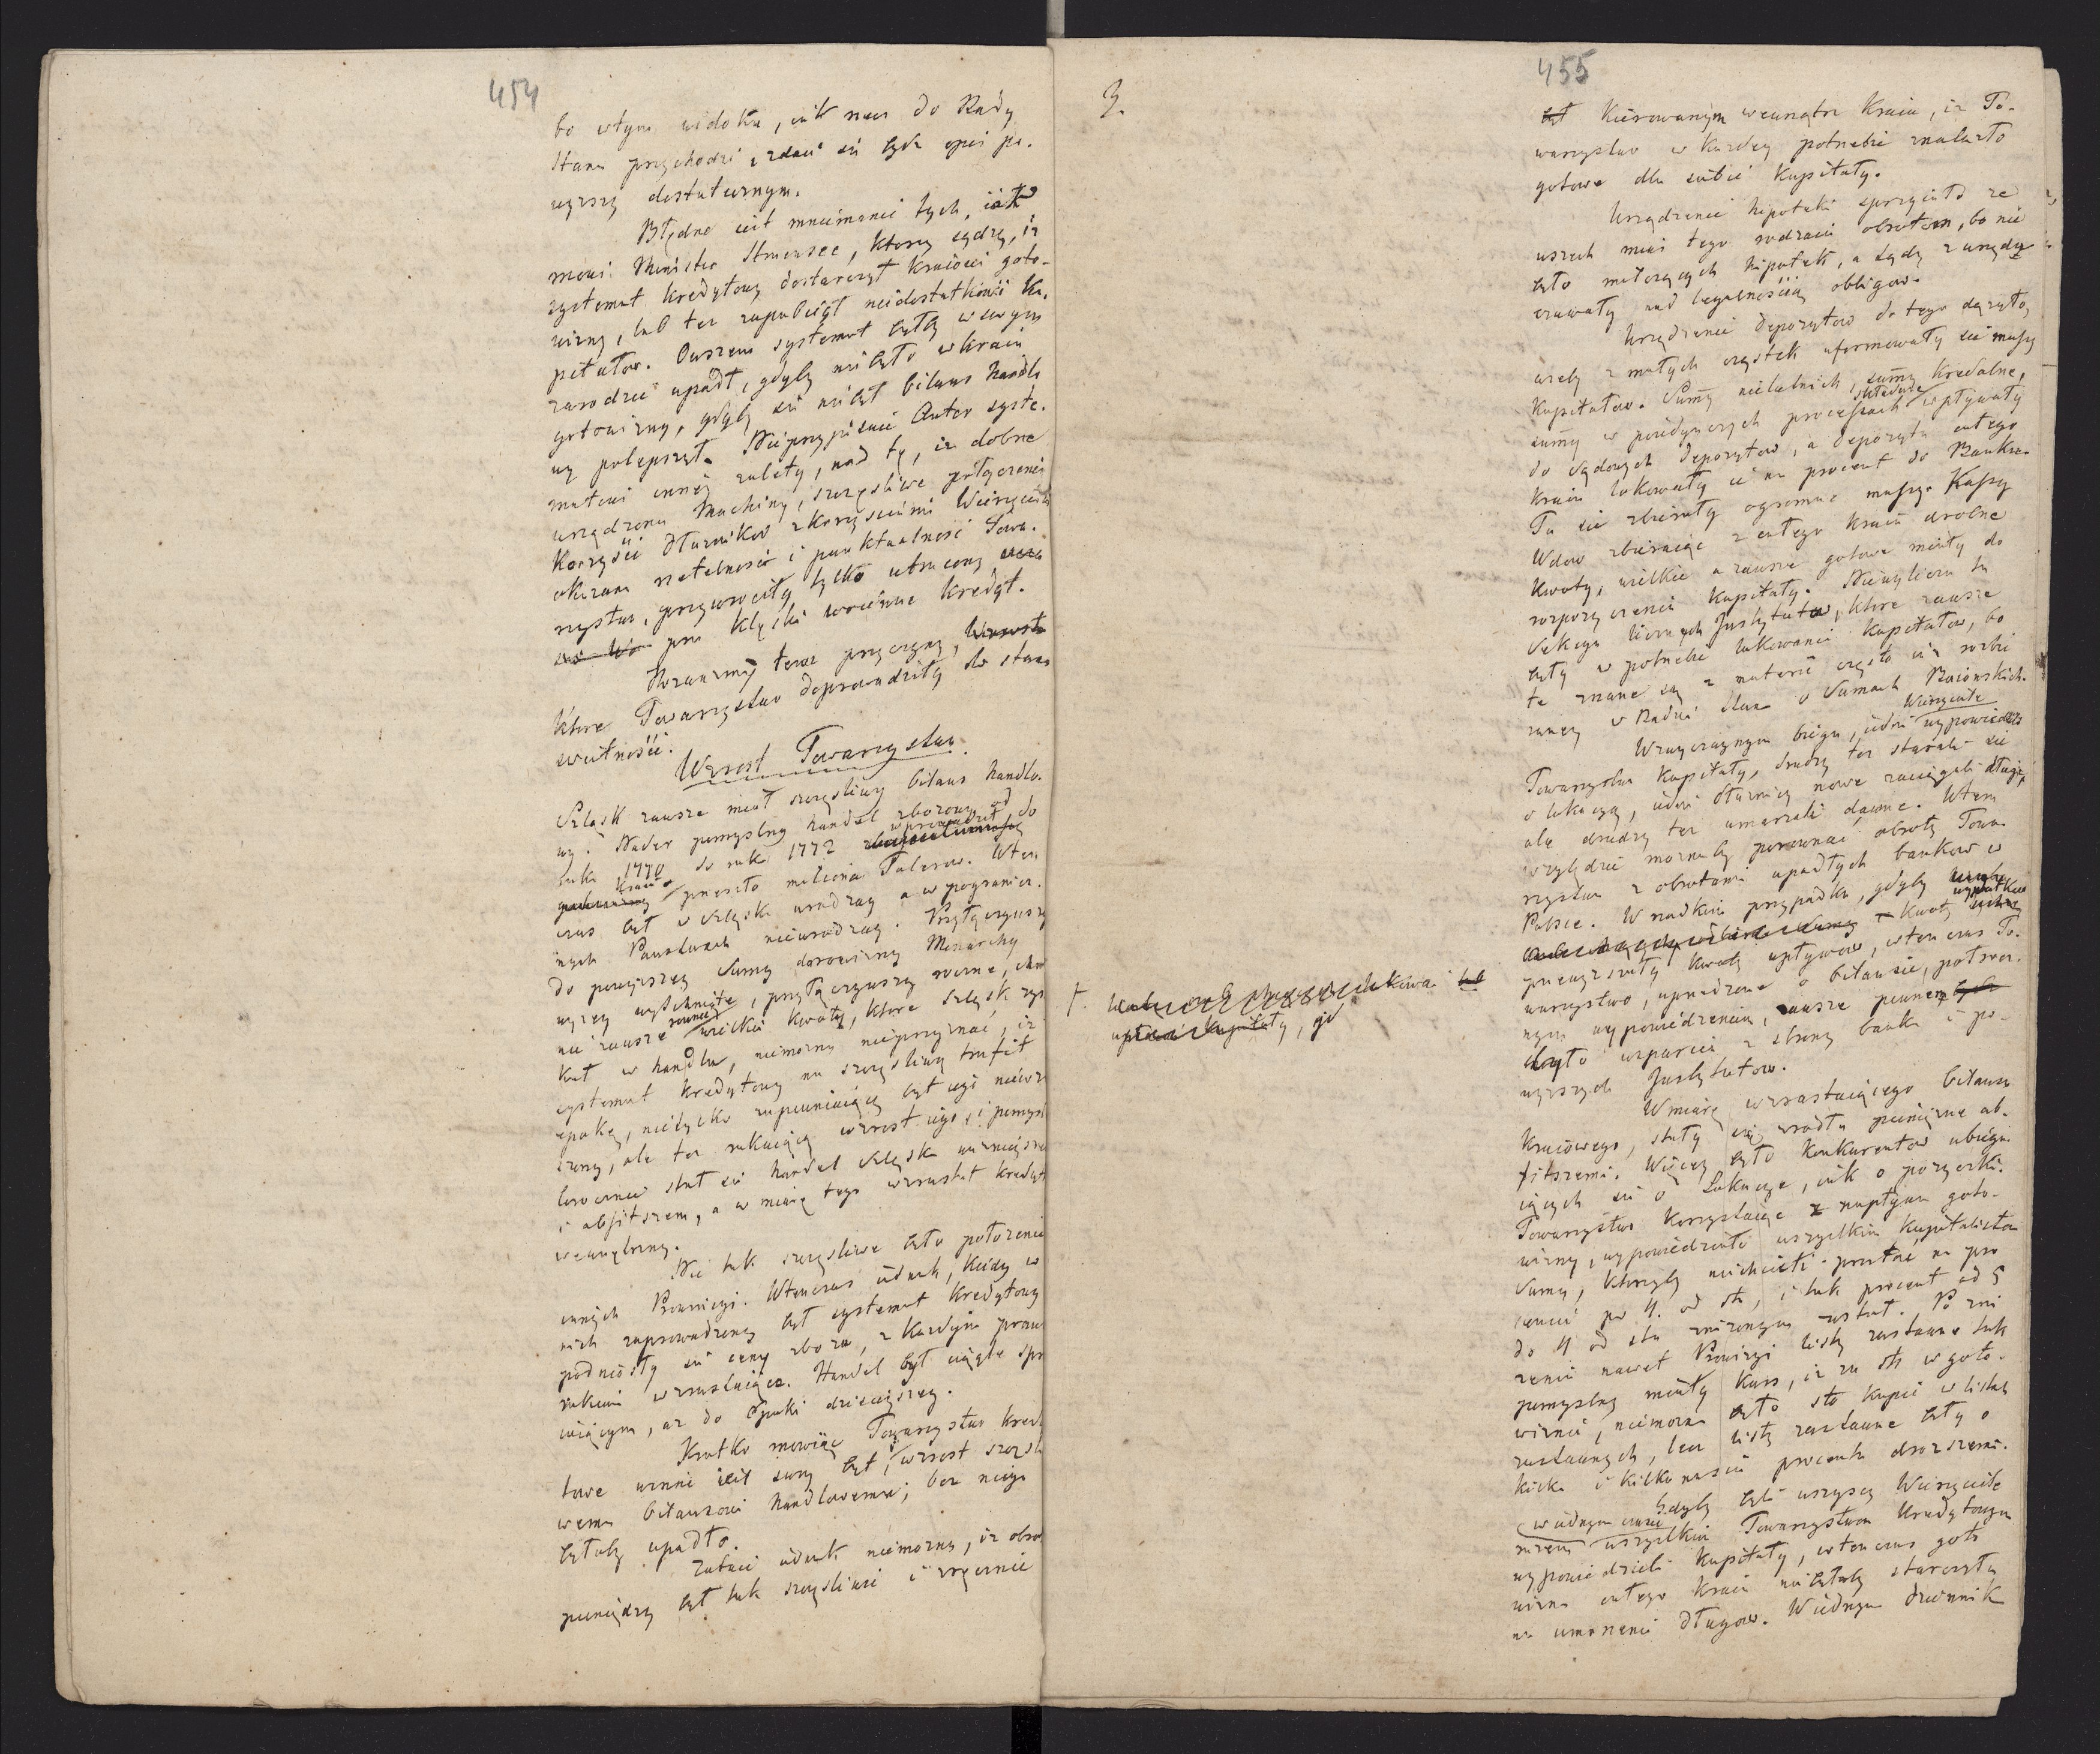 454
bo w tym widoku, iak rzecz do Rady
Stanu przychodzi, zdaie się bydź opis po-
wyższy dostatecznym.
Błędne iest mniemanie tych, iak
mowi Minister Struensee, ktorzy sądzą, iż
systemat kredytowy dostarczył kraiowi goto-
wizny, lub też zapobiegł niedostatkowi Ka-
pitałow. Owszem systemat byłby w swym
zarodzie upadł, gdyby nie było w kraiu
gotowizny, gdyby się nie był bilans handlo
wy polepszył. Nieprzypisuie Autor syste-
matowi inney zalety, nad tę, iż dobrze
urządzona Machina, szczęśliwe połączenie
Korzyści Dłużnikow z korzyściami Wierzycieli
okazana rzetelność i punktualność Towa-
rzystw, przywrociły tylko utracony
przez klęski woienne kredyt.
Rozważmy teraz przyczyny,
ktore Towarzystwo doprowadziły do stanu
świetności.
Wzrost Towarzystw.
Szląsk zawsze miał szczęśliwy bilans handlo-
wy. Nader pomyślny handel zbożowy od
roku 1770 do roku 1772 wprowadził do
Kraiu przeszło miliona Talarow. Wten
czas był w Szląsku urodzay a w pogranicz-
nych Państwach nieurodzay. Przyłączywszy
do powyższey Summy darowizny Monarchy
wyżey wytchnięte, przyłączywszy roczne, choć
nie zawsze rownie wielkie kwoty, ktore Szląsk zys-
kał w handlu, niemożna nieprzyznać, iż
systemat kredytowy na szczęśliwą trafił
epokę, nietylko zapewniaiącą byt iego
, ale też rokuiącą wzrost iego i pomyśl
Corocznie stał się handel Szląska ważnieyszy
i obfitszem, a w miarę tego wzrastał kredyt
wewnętrzny.
Nie tak szczęśliwe było położenie
innych Prowincyi. Wtenczas iednak, kiedy w
nich zaprowadzony był systemat kredytowy
podniosły się ceny zboża, z każdym prawie
rokiem wzrastaiące. Handel był ciągle sprzy
iaiącym, aż do Epoki dzisieyszey.
Krotko mowiąc Towarzystwo kredy
towe winne iest swoy byt i wzrost szczęśli
wemu bilansowi handlowemu; bez niego
byłoby upadło.
Zataić iednak niemożna, iż obro
pieniędzy był tak szczęśliwie i zręcznie
3.
455
kierowanym wewnątrz Kraiu, iż To-
warzystwo w każdey potrzebie znalazło
gotowe dla siebie kapitały.
Urządzenie hipoteki sprzyiało ze
wszech miar tego rodzaiu obrotom, bo nie
było milczących hipotek, a Sądy z urzędu
czuwały nad legalnością obligow.
Urządzenie depozytow do tego dążyło,
ażeby z małych cząstek uformowały się massy
Kapitałow. Summy nieletnich, summy kredalne,
summy w poiedynczych processach składane wpływały
do sądowych depozytow, a depozyta całego
kraiu lokowały ie na procent do Banku.
Tu się zbierały ogromne massy. Kassy
Wdow zbieraiąc z całego kraiu drobne
kwoty, wielkie a zawsze gotowe miały do
rozporządzenia kapitały. Niewyliczam tu
Sekcyi licznych Instytutow, ktore zawsze
były w potrzebie lokowania kapitałow, bo
te znane są z materii często iuż rozbie
raney w Radzie Stanu o Sumach Baiońskich.
W zwyczaynym biegu, iedni Wierzyciele wypowiadali
Towarzystwu kapitały, drudzy też starali się
o lokacyą, iedni dłużnicy nowe zaciągali długi,
ale drudzy też umarzali dawne. W tem
względzie możnaby porownać obroty Towa-
rzystwa z obrotami upadłych bankow w
Polsce. W rzadkim przypadku, gdyby
kwoty
przewyższały kwoty wpływow, wtenczas To-
warzystwo, uprzedzone o bilansie, poczwor-
nym wypowiedzeniem, zawsze pewnem
było wsparcia z strony banku i po-
wyższych Instytutow.
W miarę wzrastaiącego bilansu
kraiowego, stały się źrodła pieniężne ob-
fitszemi. Więcey było konkurentow ubiega
iących się o Lokacye, iak o pożyczki.
Towarzystwo korzystaiąc z napływu goto-
wizny, wypowiedziało wszystkim kapitalistom
Sumy, ktorzyby niechcieli przestać na pro
cencie po 4. od sta, i tak procent od 5
do 4 od sta zniżonym został. Po zni
żeniu nawet Prowizyi listy zastawne tak
pomyślny miały kurs, iż za sto w goto-
wiznie, niemożna było sto kupić w listach
zastawnych, lecz listy zastawne były o
kilka i kilkanaście procentu droższemi.
Gdyby byli wszyscy Wierzyciele
w iednym czasie wszystkim Towarzystwom Kredytowym
wypowiedzieli kapitały, wtenczas goto
wizna całego kraiu nie byłaby starczyła
na umorzenie długow. W iednym dzienniku